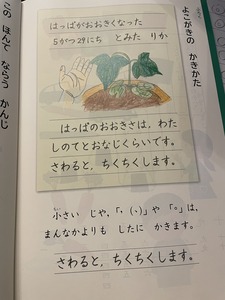 よこがきの　かきかた
はっぱがおおきくなった
5がつ29にち　とみた　りか
　はっぱのおおきさは、わた
しのてとおなじくらいです。
さわると、ちくちくします。
小さい　じや、「、(，)」や　「。」は、
まんなかよりも　したに　かきます。
さわると、ちくちくします。
この　ほんで　ならう　かんじ